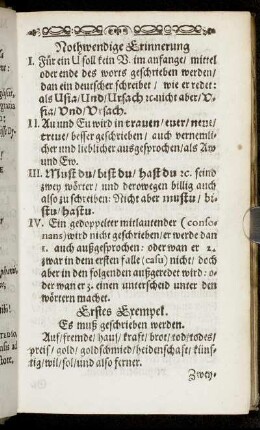 Nothwendige Erinnerung
I. Für ein U soll kein V. im anfange/ mittel
oder ende des worts geschrieben werden/
dan ein deutscher schreibet / wie er redet:
als Usta/Und/Ursach ꝛc nicht aber/V-
sta/Vnd/Vrsach.
II. Au und Eu wird in trauen/euer/neue/
treue/ besser geschrieben / auch vernemli-
cher und lieblicher ausgesprochen/als Aw
und Ew.
III. Must du/bist du/hast du ꝛc. seind
zwey wörter/ und derowegen billig auch
also zu schreiben: Nicht aber mustu / bi-
stu/hastu.
IV. Ein gedoppelter mitlautender (conso-
nans) wird nicht geschrieben/er werde dan
1. auch außgesprochen: oder wan er 2.
zwar in dem ersten falle (casu) nicht/ doch
aber in den folgenden außgeredet wird: o-
der wan er 3. einen unterscheid unter den
wörtern machet.
Erstes Exempel.
Es muß geschrieben werden.
Auf/fremde/hauf/kraft/brot/tod/todes/
preis/ gold/goldschmied/heidenschaft/ küns-
tig/wil/sol/und also ferner.
Zwey-